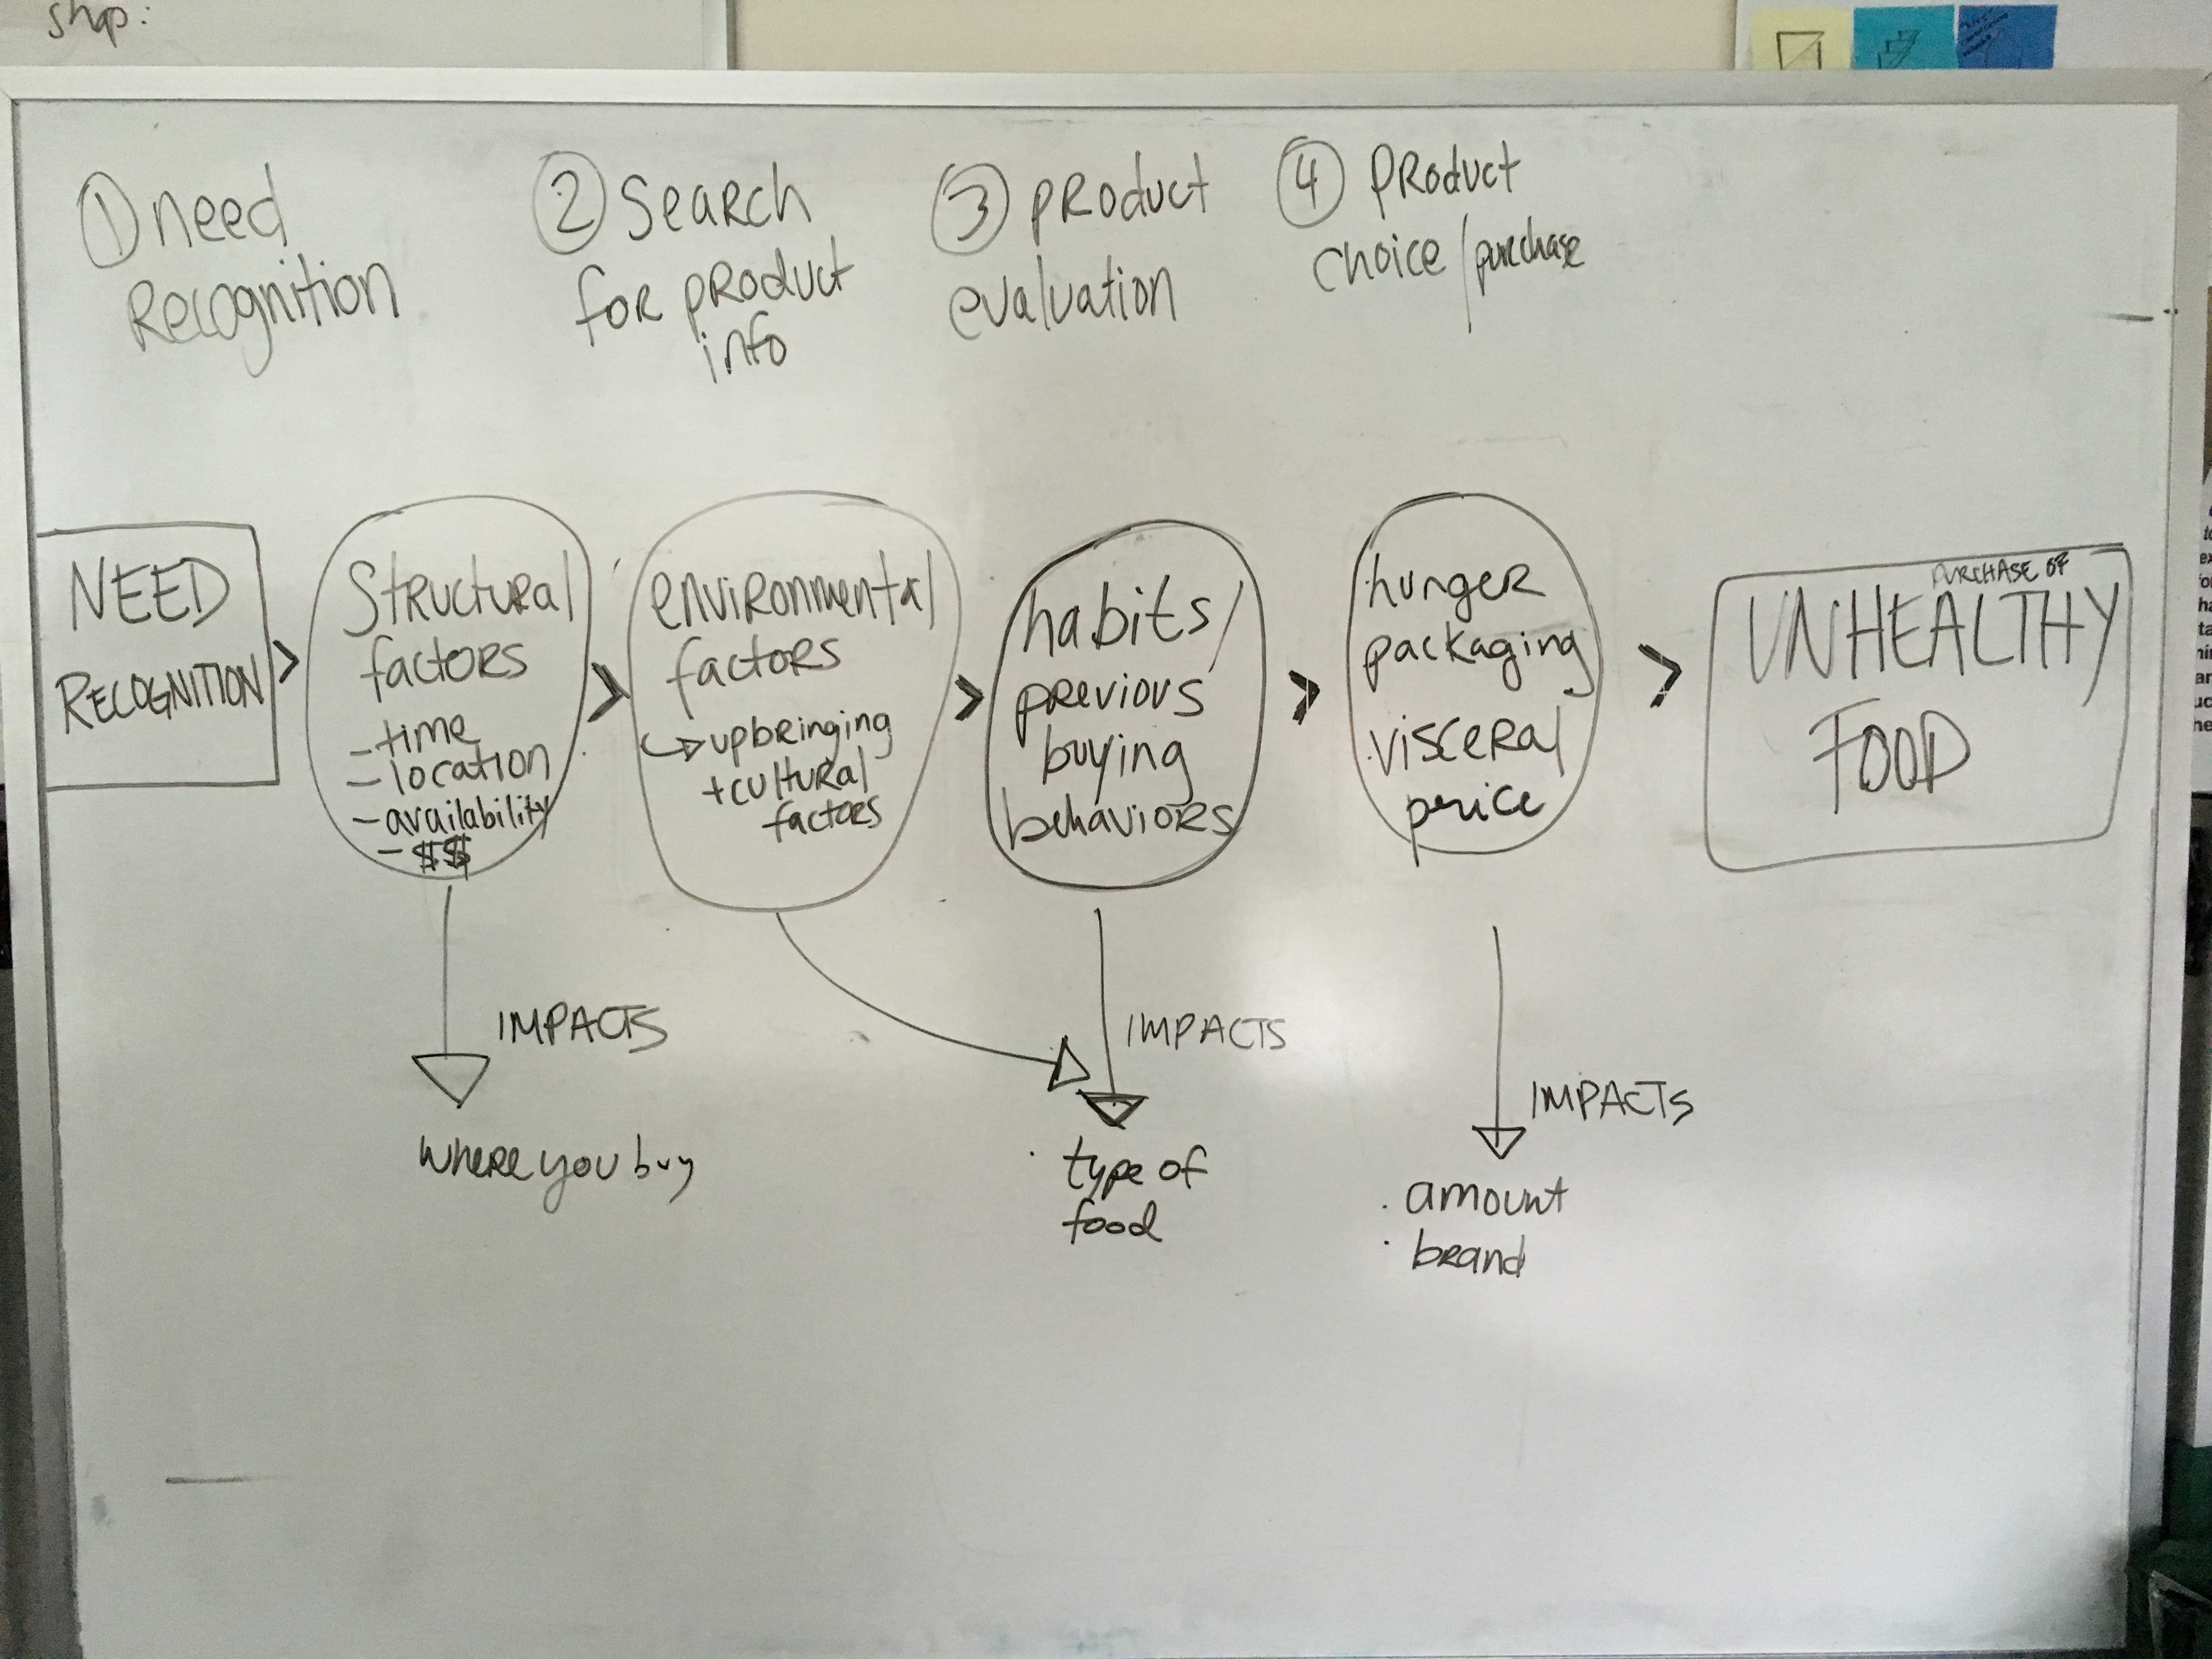 shop:
① need
Recognition
② Search
for product
info
③ product
evaluation
④ product
choice/purchase
NEED
RECOGNITION
>
Structural
factors
- time
- location
- availability
- $$
>
environmental
factors
↪ upbringing
+ cultural
factors
>
habits/
previous
buying
behaviors
>
hunger
packaging
visceral
price
>
PURCHASE OF
UNHEALTHY
FOOD
IMPACTS
where you buy
IMPACTS
· type of
food
IMPACTS
· amount
· brand